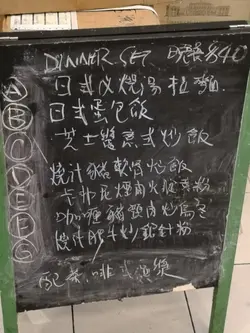 DINNER SET 晚餐 $40
A 日式叉燒湯拉麵
B 日式蛋包飯
C 芝士薯意式炒飯
D 燒汁豬軟骨炒飯
E 卡邦尼煙肉火腿意粉
F 咖喱豬頸肉炒烏冬
G 燒汁肥牛炒銀針粉
配茶、啡或凍飲